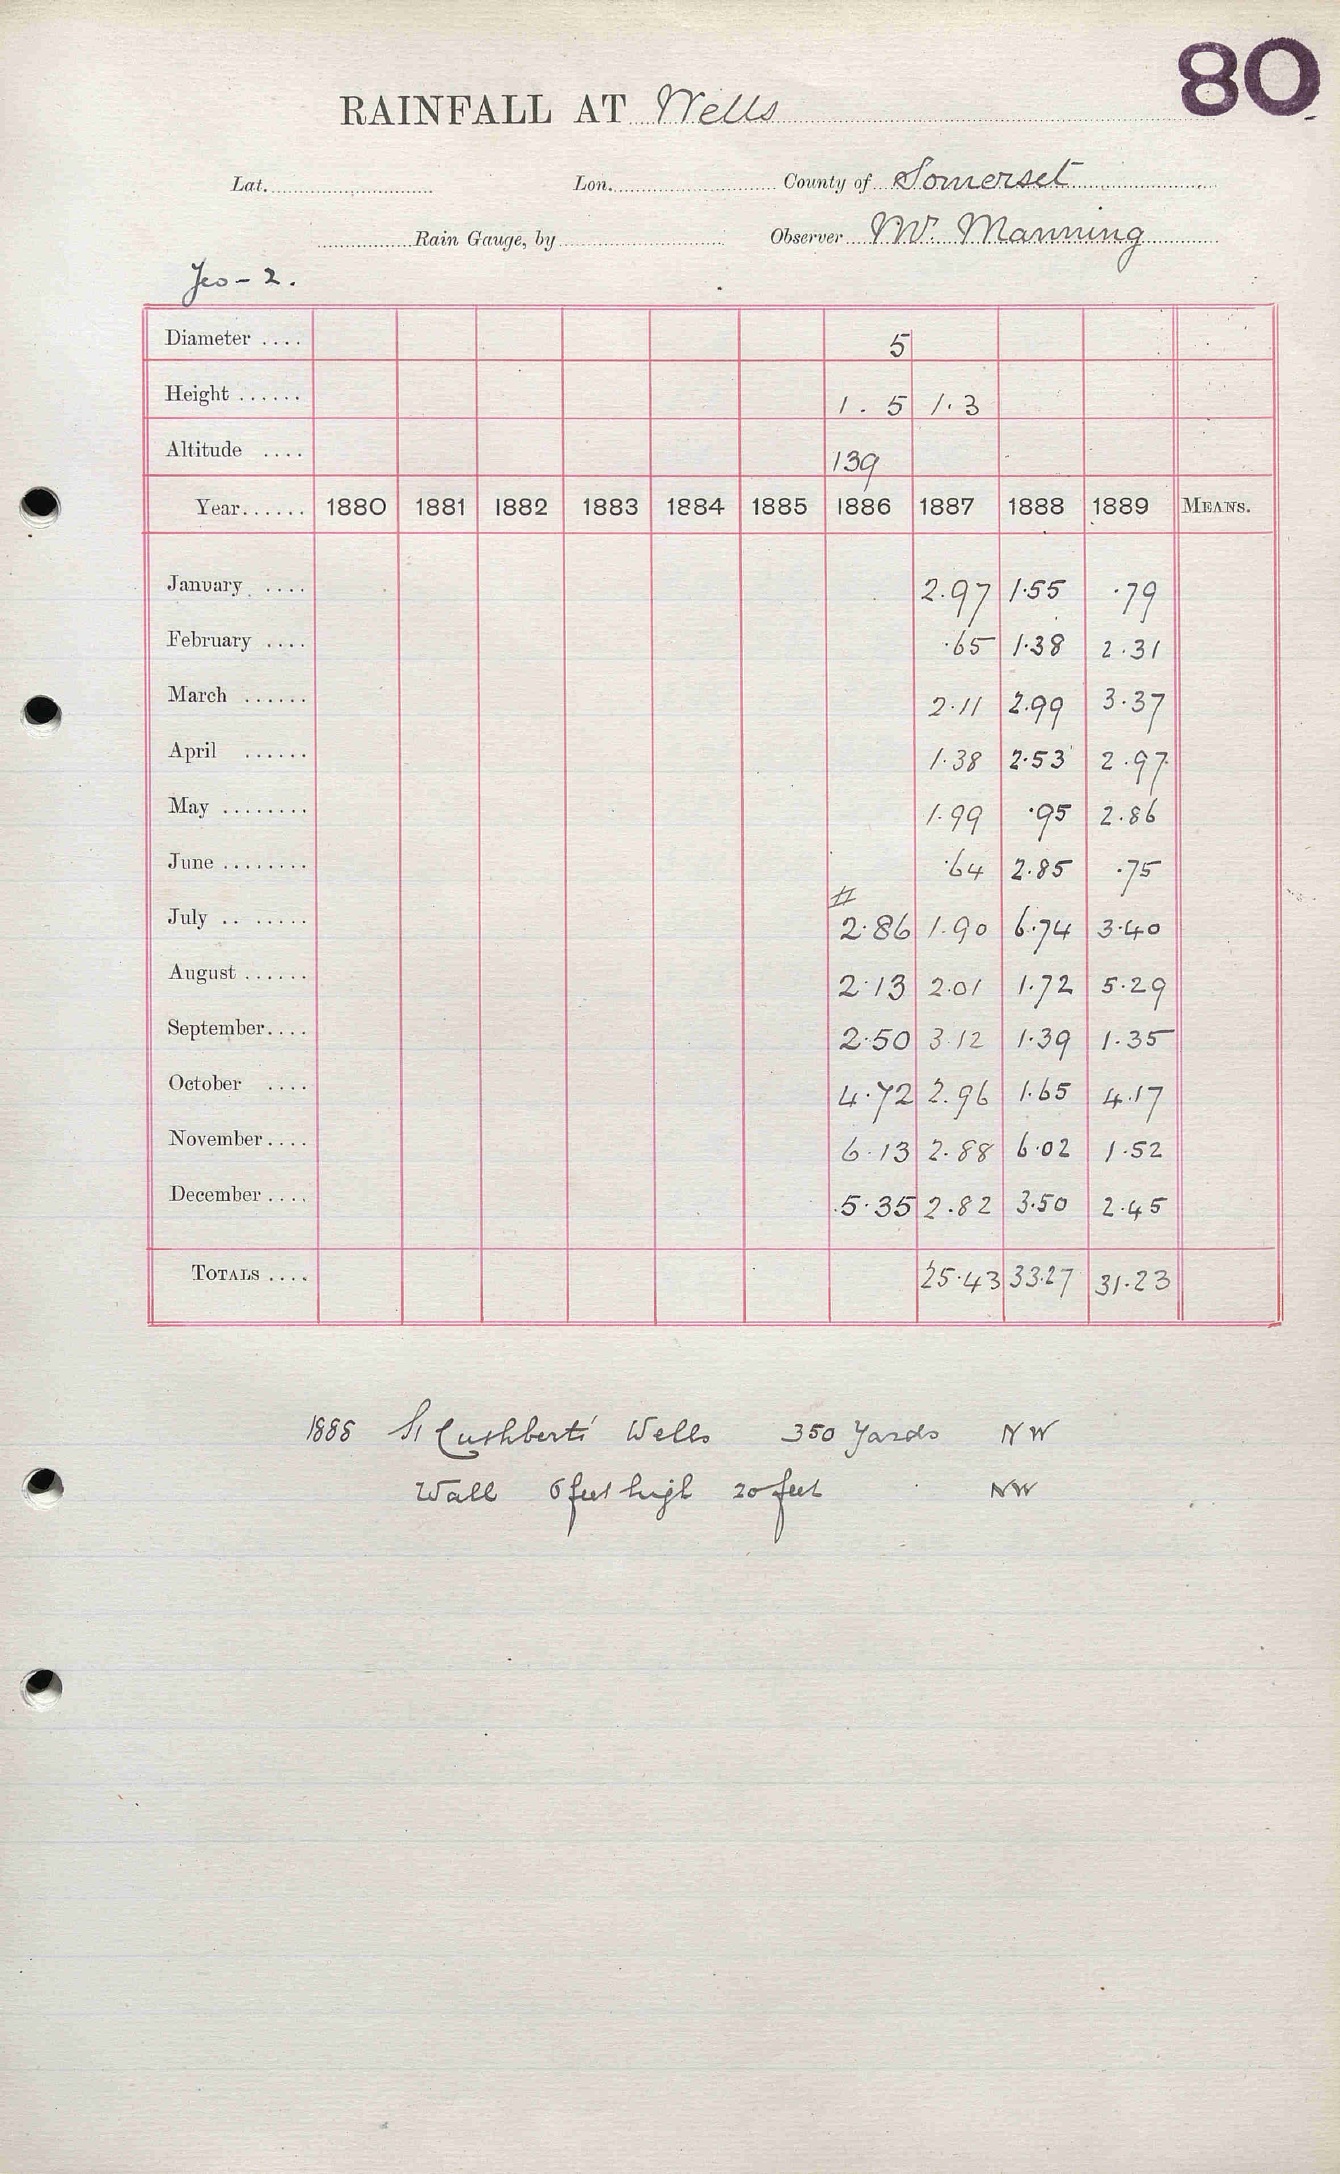 80
RAINFALL AT Wells
Lat. Lon. County of Somerset
Rain Gauge, by Observer Mr. Manning
Yeo - 2.
Diameter .... 5
Height ...... 1.5 1.3
Altitude .... 139
Year...... 1880 1881 1882 1883 1884 1885 1886 1887 1888 1889 MEANS.
January .... 2.97 1.55 .79
February .... .65 1.38 2.31
March ...... 2.11 2.99 3.37
April ...... 1.38 2.53 2.97
May ........ 1.99 .95 2.86
June ........ .64 2.85 .75
#
July .. ..... 2.86 1.90 6.74 3.40
August ...... 2.13 2.01 1.72 5.29
September.... 2.50 3.12 1.39 1.35
October .... 4.72 2.96 1.65 4.17
November.... 6.13 2.88 6.02 1.52
December .... 5.35 2.82 3.50 2.45
TOTALS .... 25.43 33.27 31.23
1888 St Cuthbert's Wells 350 Yards NW
Wall 6 feet high 20 feet NW